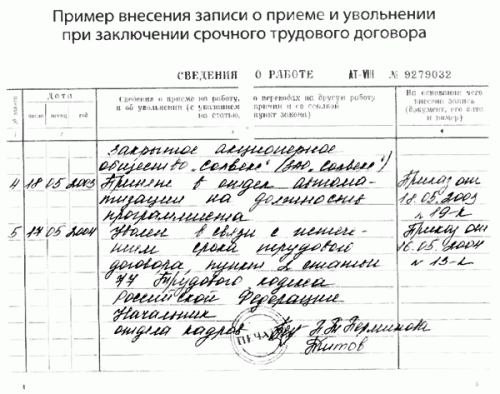 Пример внесения записи о приеме и увольнении
при заключении срочного трудового договора
СВЕДЕНИЯ О РАБОТЕ АТ-VIII № 9279032
№ записи
Дата
число месяц год
Сведения о приеме на работу, о переводах на другую работу
и об увольнении (с указанием причин и со ссылкой
на статью, пункт закона)
На основании чего
внесена запись
(документ, его дата
и номер)
2 4
Закрытое акционерное
общество „Солвекс" (ЗАО „Солвекс")
4 18 05 2003 Принят в отдел автома- Приказ от
тизации на должность 18.05.2003
программиста № 19-к
5 17 05 2004 Уволен в связи с истече- Приказ от
нием срока трудового 16.05.2004
договора, пункт 2 статьи № 13-к
77 Трудового кодекса
Российской Федерации
Начальник
отдела кадров Н.Т. Перминова
ПЕЧАТЬ Титов